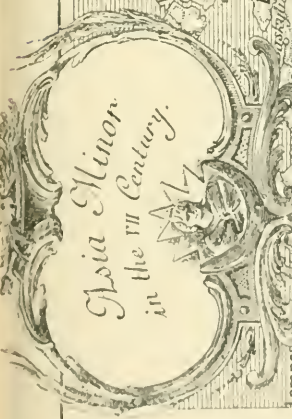 Asia Minor
in the VII Century.